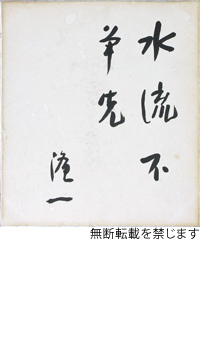 水流不
争先
一
無断転載を禁じます